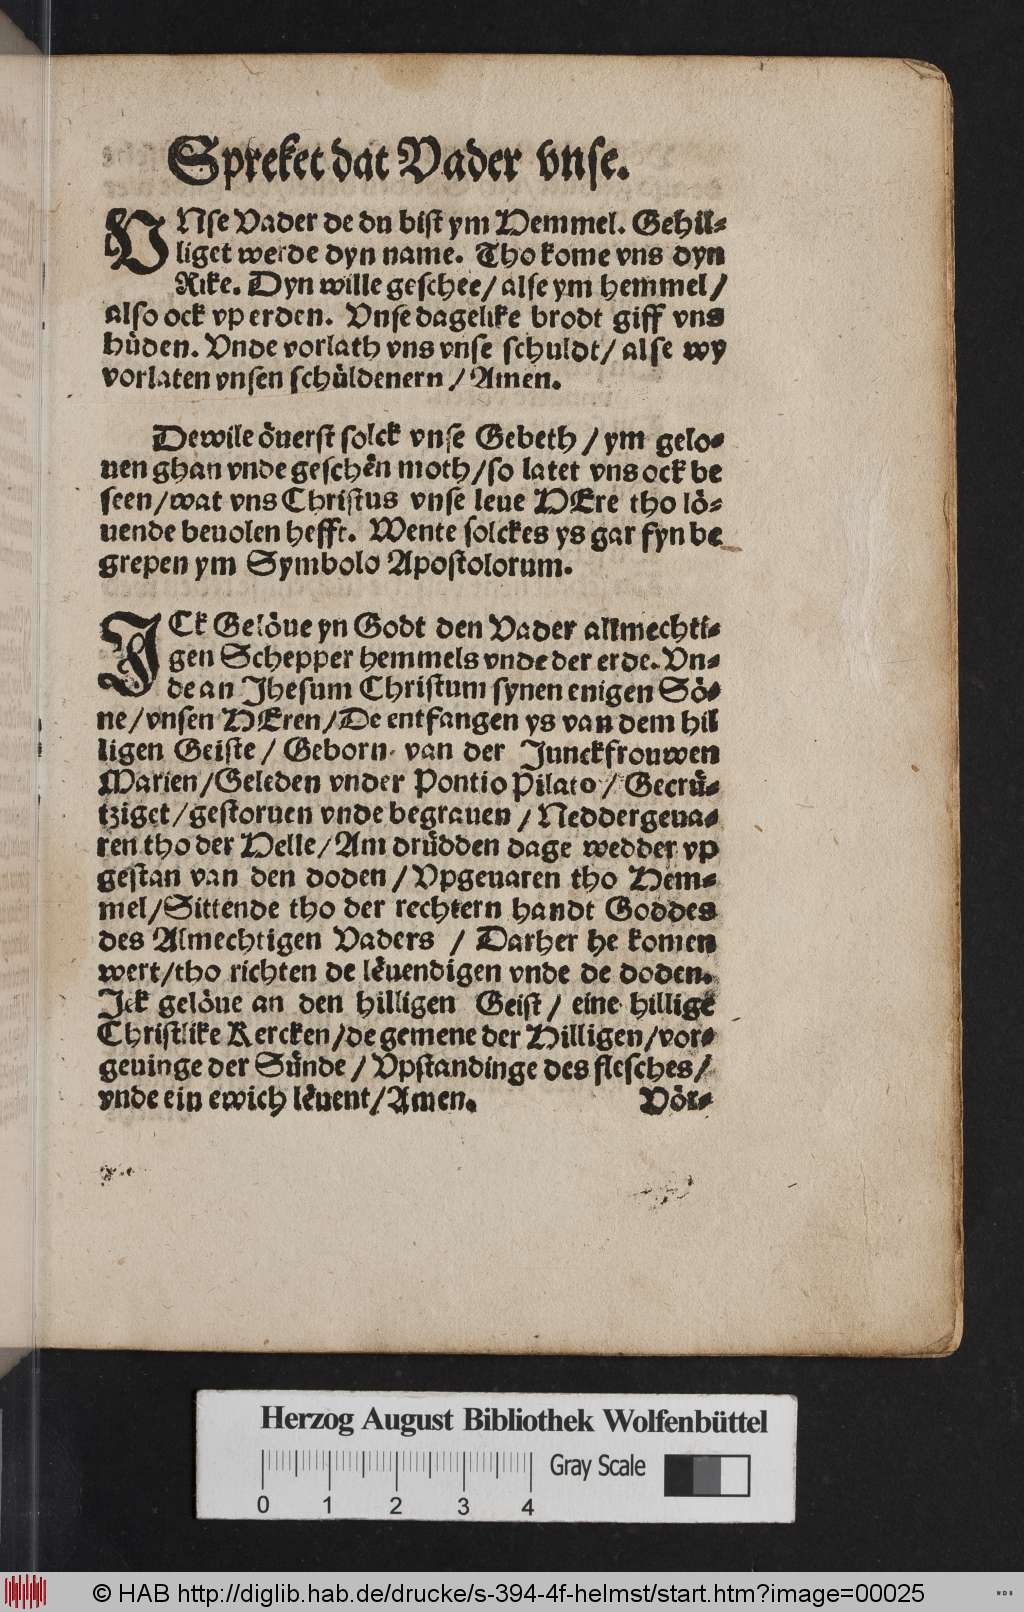 Spreket dat Vader vnse.
VNse Vader de du bist ym Hemmel. Gehil-
liget werde dyn name. Tho kome vns dyn
Rike. Dyn wille geschee / alse ym hemmel /
also ock vp erden. Vnse dagelike brodt giff vns
hüden. Vnde vorlath vns vnse schuldt / alse wy
vorlaten vnsen schüldenern / Amen.
Dewile öuerst solck vnse Gebeth / ym gelo-
uen ghan vnde geschên moth / so latet vns ock be
seen / wat vns Christus vnse leue HEre tho lö-
uende beuolen hefft. Wente solckes ys gar fyn be
grepen ym Symbolo Apostolorum.
ICk Gelöue yn Godt den Vader allmechti-
gen Schepper hemmels vnde der erde. Vn-
de an Jhesum Christum synen enigen Sö-
ne / vnsen HEren / De entfangen ys van dem hil
ligen Geiste / Geborn van der Junckfrouwen
Marien / Geleden vnder Pontio Pilato / Gecrü-
tziget / gestoruen vnde begrauen / Neddergeua-
ren tho der Helle / Am drüdden dage wedder vp
gestan van den doden / Vpgeuaren tho Hem-
mel / Sittende tho der rechtern handt Goddes
des Almechtigen Vaders / Darher he komen
wert / tho richten de lêuendigen vnde de doden.
Jck gelöue an den hilligen Geist / eine hillige
Christlike Kercken / de gemene der Hilligen / vor-
geuinge der Sünde / Vpstandinge des flesches /
vnde ein ewich lêuent / Amen. Vör-
Herzog August Bibliothek Wolfenbüttel
Gray Scale
0 1 2 3 4
© HAB http://diglib.hab.de/drucke/s-394-4f-helmst/start.htm?image=00025